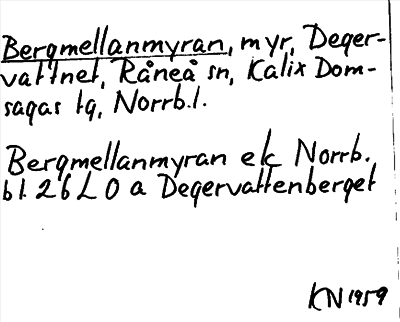 Bergmellanmyran, myr, Deger-
vattnet, Råneå sn, Kalix Dom-
sagas tg, Norrb.l.
Bergmellanmyran ek Norrb.
bl. 26 L 0 a Degervattenberget
KN 1959